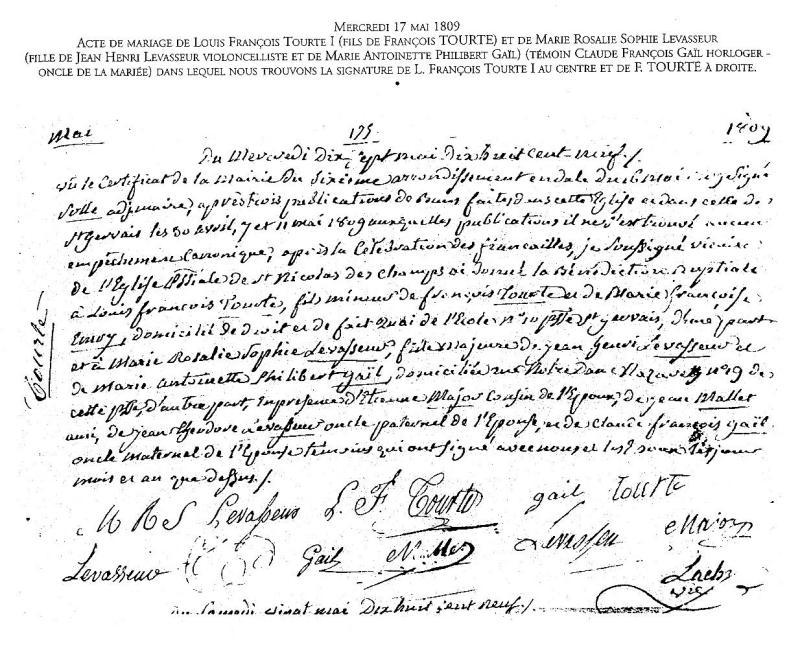 MERCREDI 17 MAI 1809
ACTE DE MARIAGE DE LOUIS FRANÇOIS TOURTE I (FILS DE FRANÇOIS TOURTE) ET DE MARIE ROSALIE SOPHIE LEVASSEUR
(FILLE DE JEAN HENRI LEVASSEUR VIOLONCELLISTE ET DE MARIE ANTOINETTE PHILIBERT GAÏL) (TÉMOIN CLAUDE FRANÇOIS GAÏL HORLOGER -
ONCLE DE LA MARIÉE) DANS LEQUEL NOUS TROUVONS LA SIGNATURE DE L. FRANÇOIS TOURTE I AU CENTRE ET DE F. TOURTE À DROITE.
Mai 175 1809
Du Mercredi Dix Sept mai Dix huit Cent neuf ./.
vu le Certificat de la Mairie du Sixieme arrondissement en date du mai Signé
adj maire, après trois publications de bans faites dans cette Eglise et dans celle de
St Gervais les 30 avril, 7 et 11 mai 1809 auxquelles publications il ne s'est trouvé aucun
empêchement Canonique, après la Célébration des fiancailles, je Soussigné vicaire
de l'Eglise de St Nicolas des Champs ai donné la Bénédiction nuptiale
à Louis françois Tourte, fils mineur de françois Tourte et de Marie françoise
domicilié de droit et de fait quai de l'Ecole n° 10 St Gervais, d'une part
et à Marie Rosalie Sophie Levasseur, fille majeure de jean henri Levasseur et
de Marie antoinette Philibert Gail, domiciliée rue Notre Dame Nazareth n° 19 de
cette d'autre part, en presence d'Etienne Major Cousin de l'Epoux, de jean Mallet
ami, de jean théodore Levasseur oncle paternel de l'Epouse, et de claude françois Gail
oncle maternel de l'Epouse temoins qui ont signé avec nous et les Epoux les jour
mois et an que dessus ./.
Tourte
M R S Levasseur L. F. Tourte gail tourte
Levasseur Gail Levasseur Major
vic
Du Samedi vingt mai Dix huit Cent neuf ./.